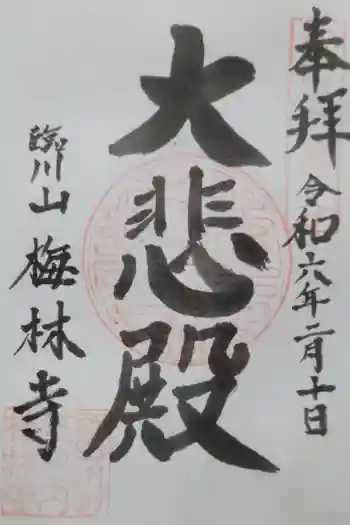 奉拝
令和六年二月十日
大悲殿
臨川山
梅林寺